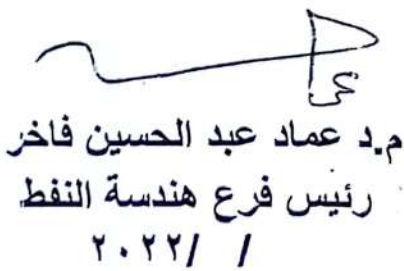 م.د عماد عبد الحسين فاخر
رئيس فرع هندسة النفط
/ /٢٠٢٢